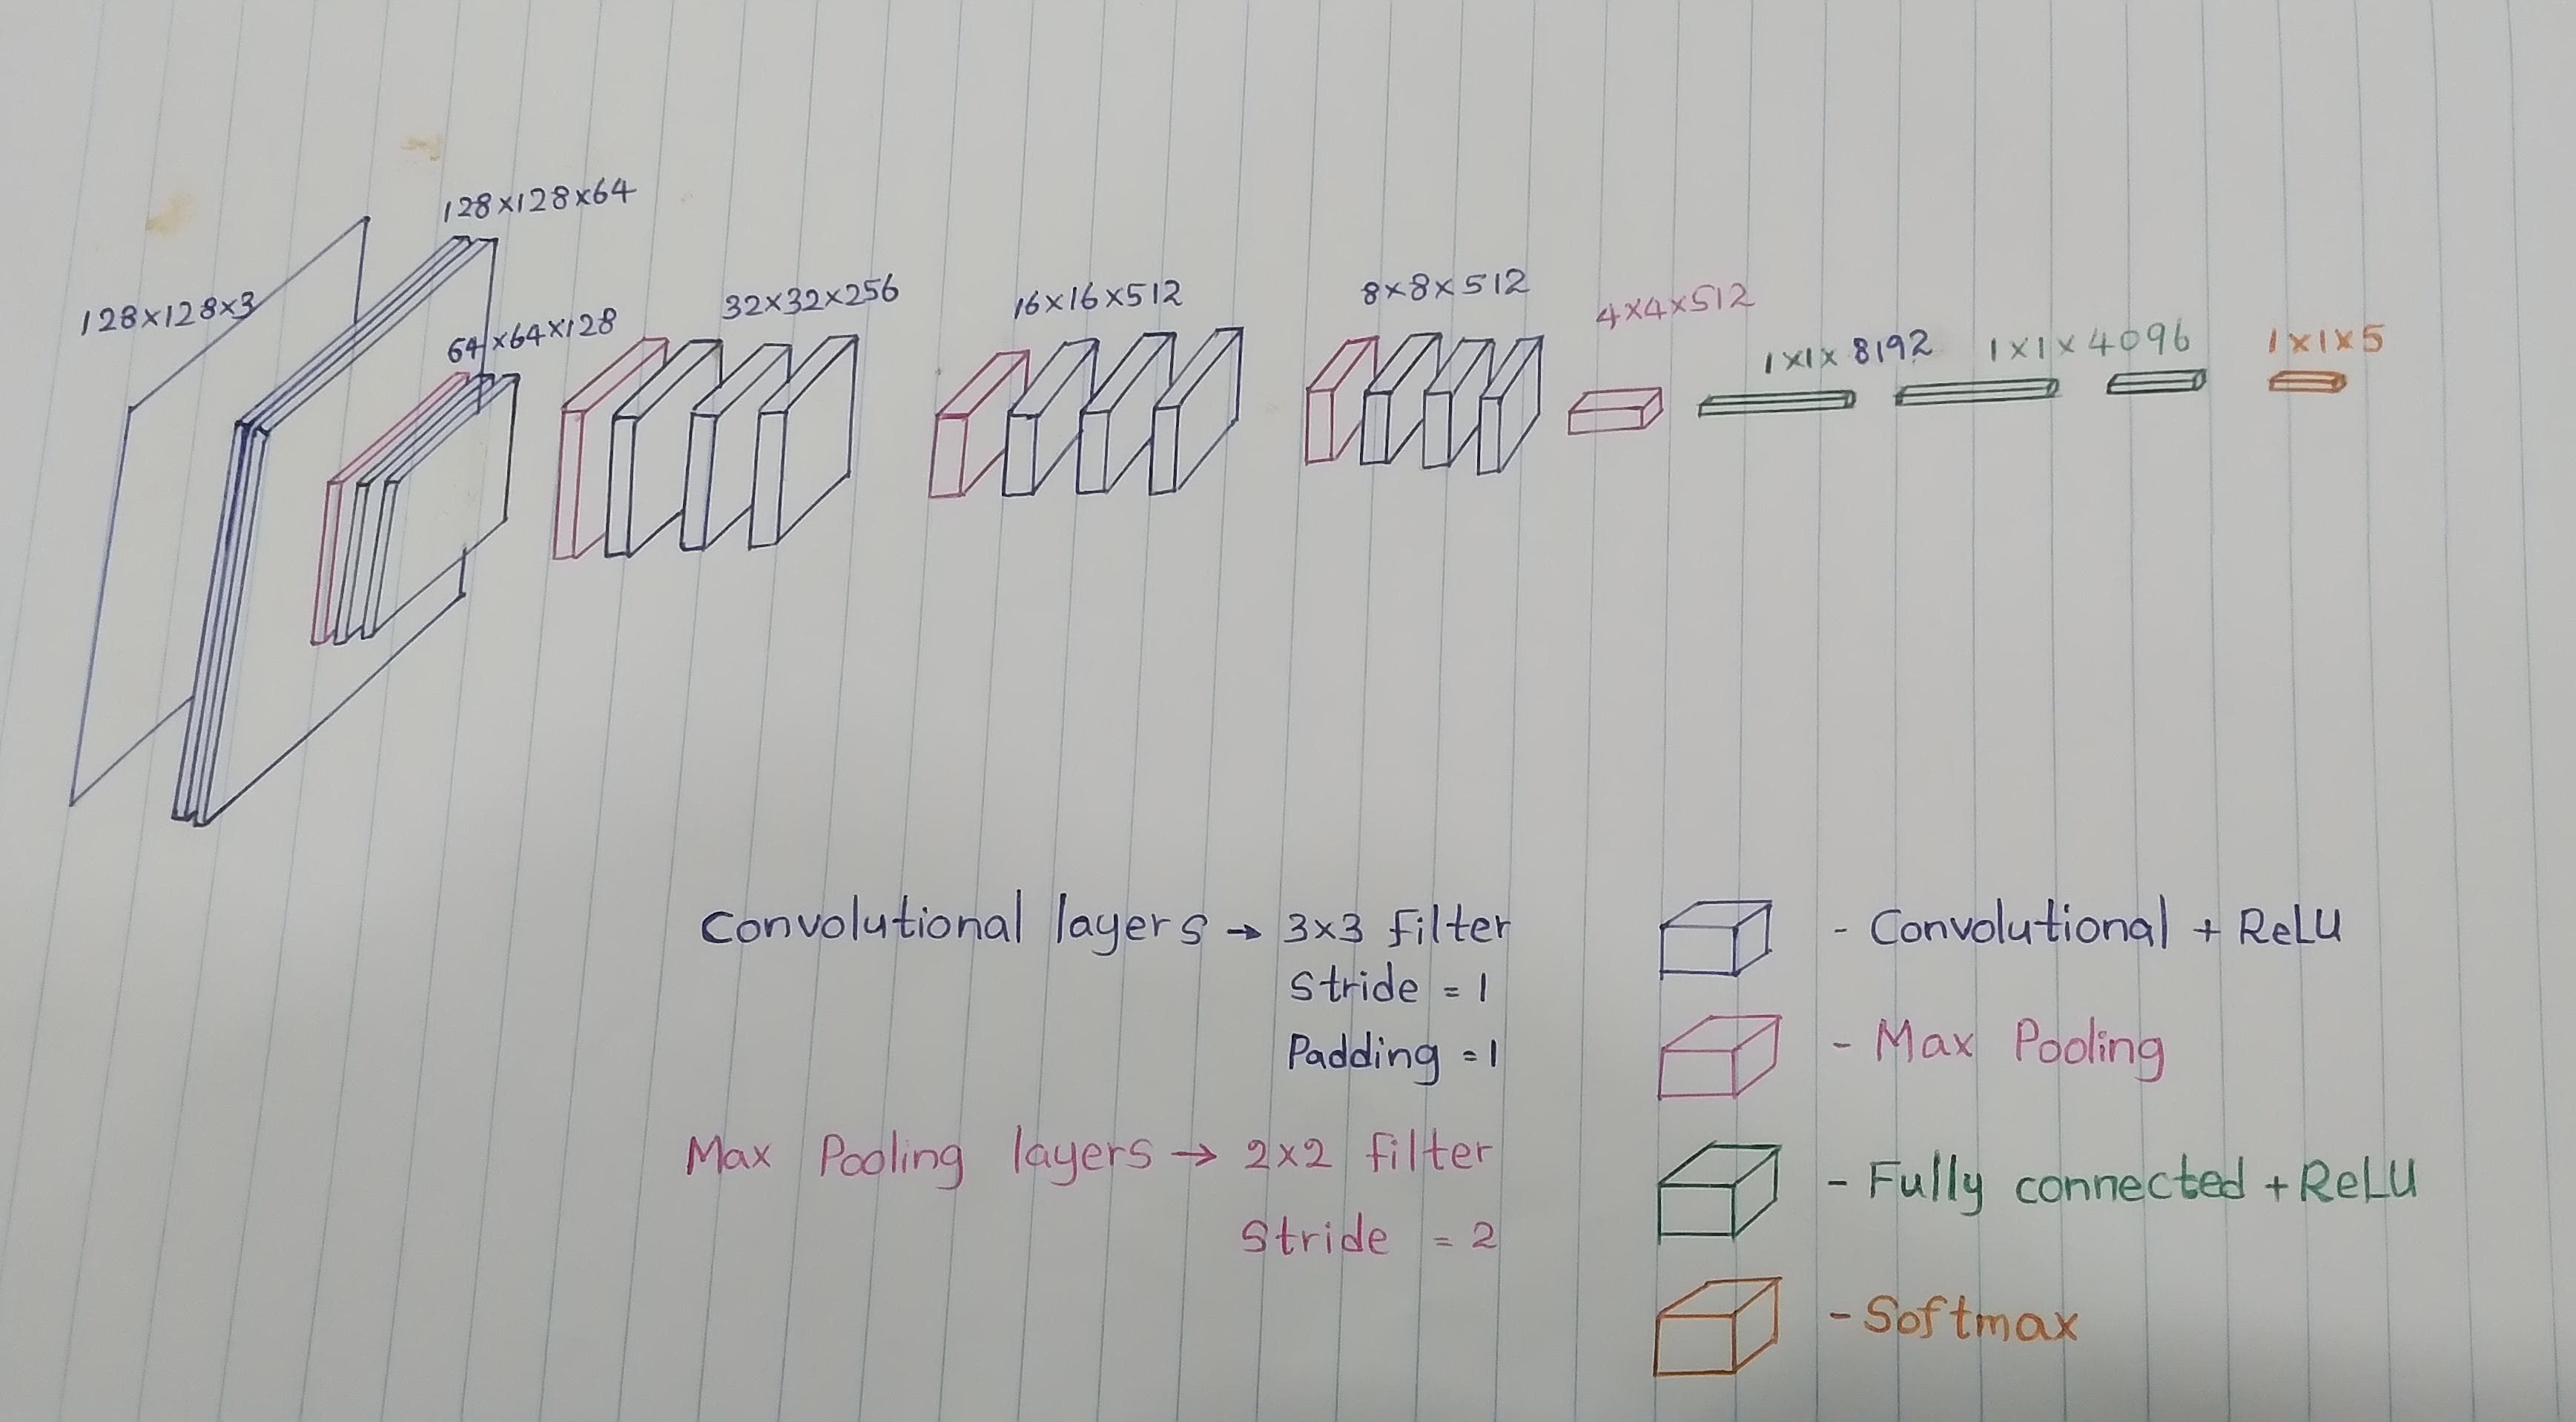 128×128×3
128×128×64
64×64×128
32×32×256
16×16×512
8×8×512
4×4×512
1×1×8192
1×1×4096
1×1×5
Convolutional layers → 3×3 filter
Stride = 1
Padding = 1
Max Pooling layers → 2×2 filter
Stride = 2
- Convolutional + ReLU
- Max Pooling
- Fully connected + ReLU
- Softmax